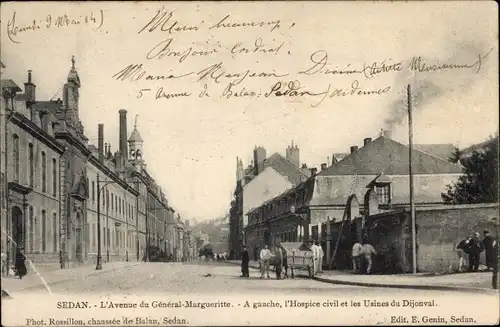 (Lundi 9 Mai 04)
Merci beaucoup.
Bonjour cordial
Maria
5 Avenue de Balan, Sedan, Ardennes
SEDAN. - L'Avenue du Général-Margueritte. - A gauche, l'Hospice civil et les Usines du Dijonval.
Phot. Rossillon, chaussée de Balan, Sedan.
Edit. E. Genin, Sedan